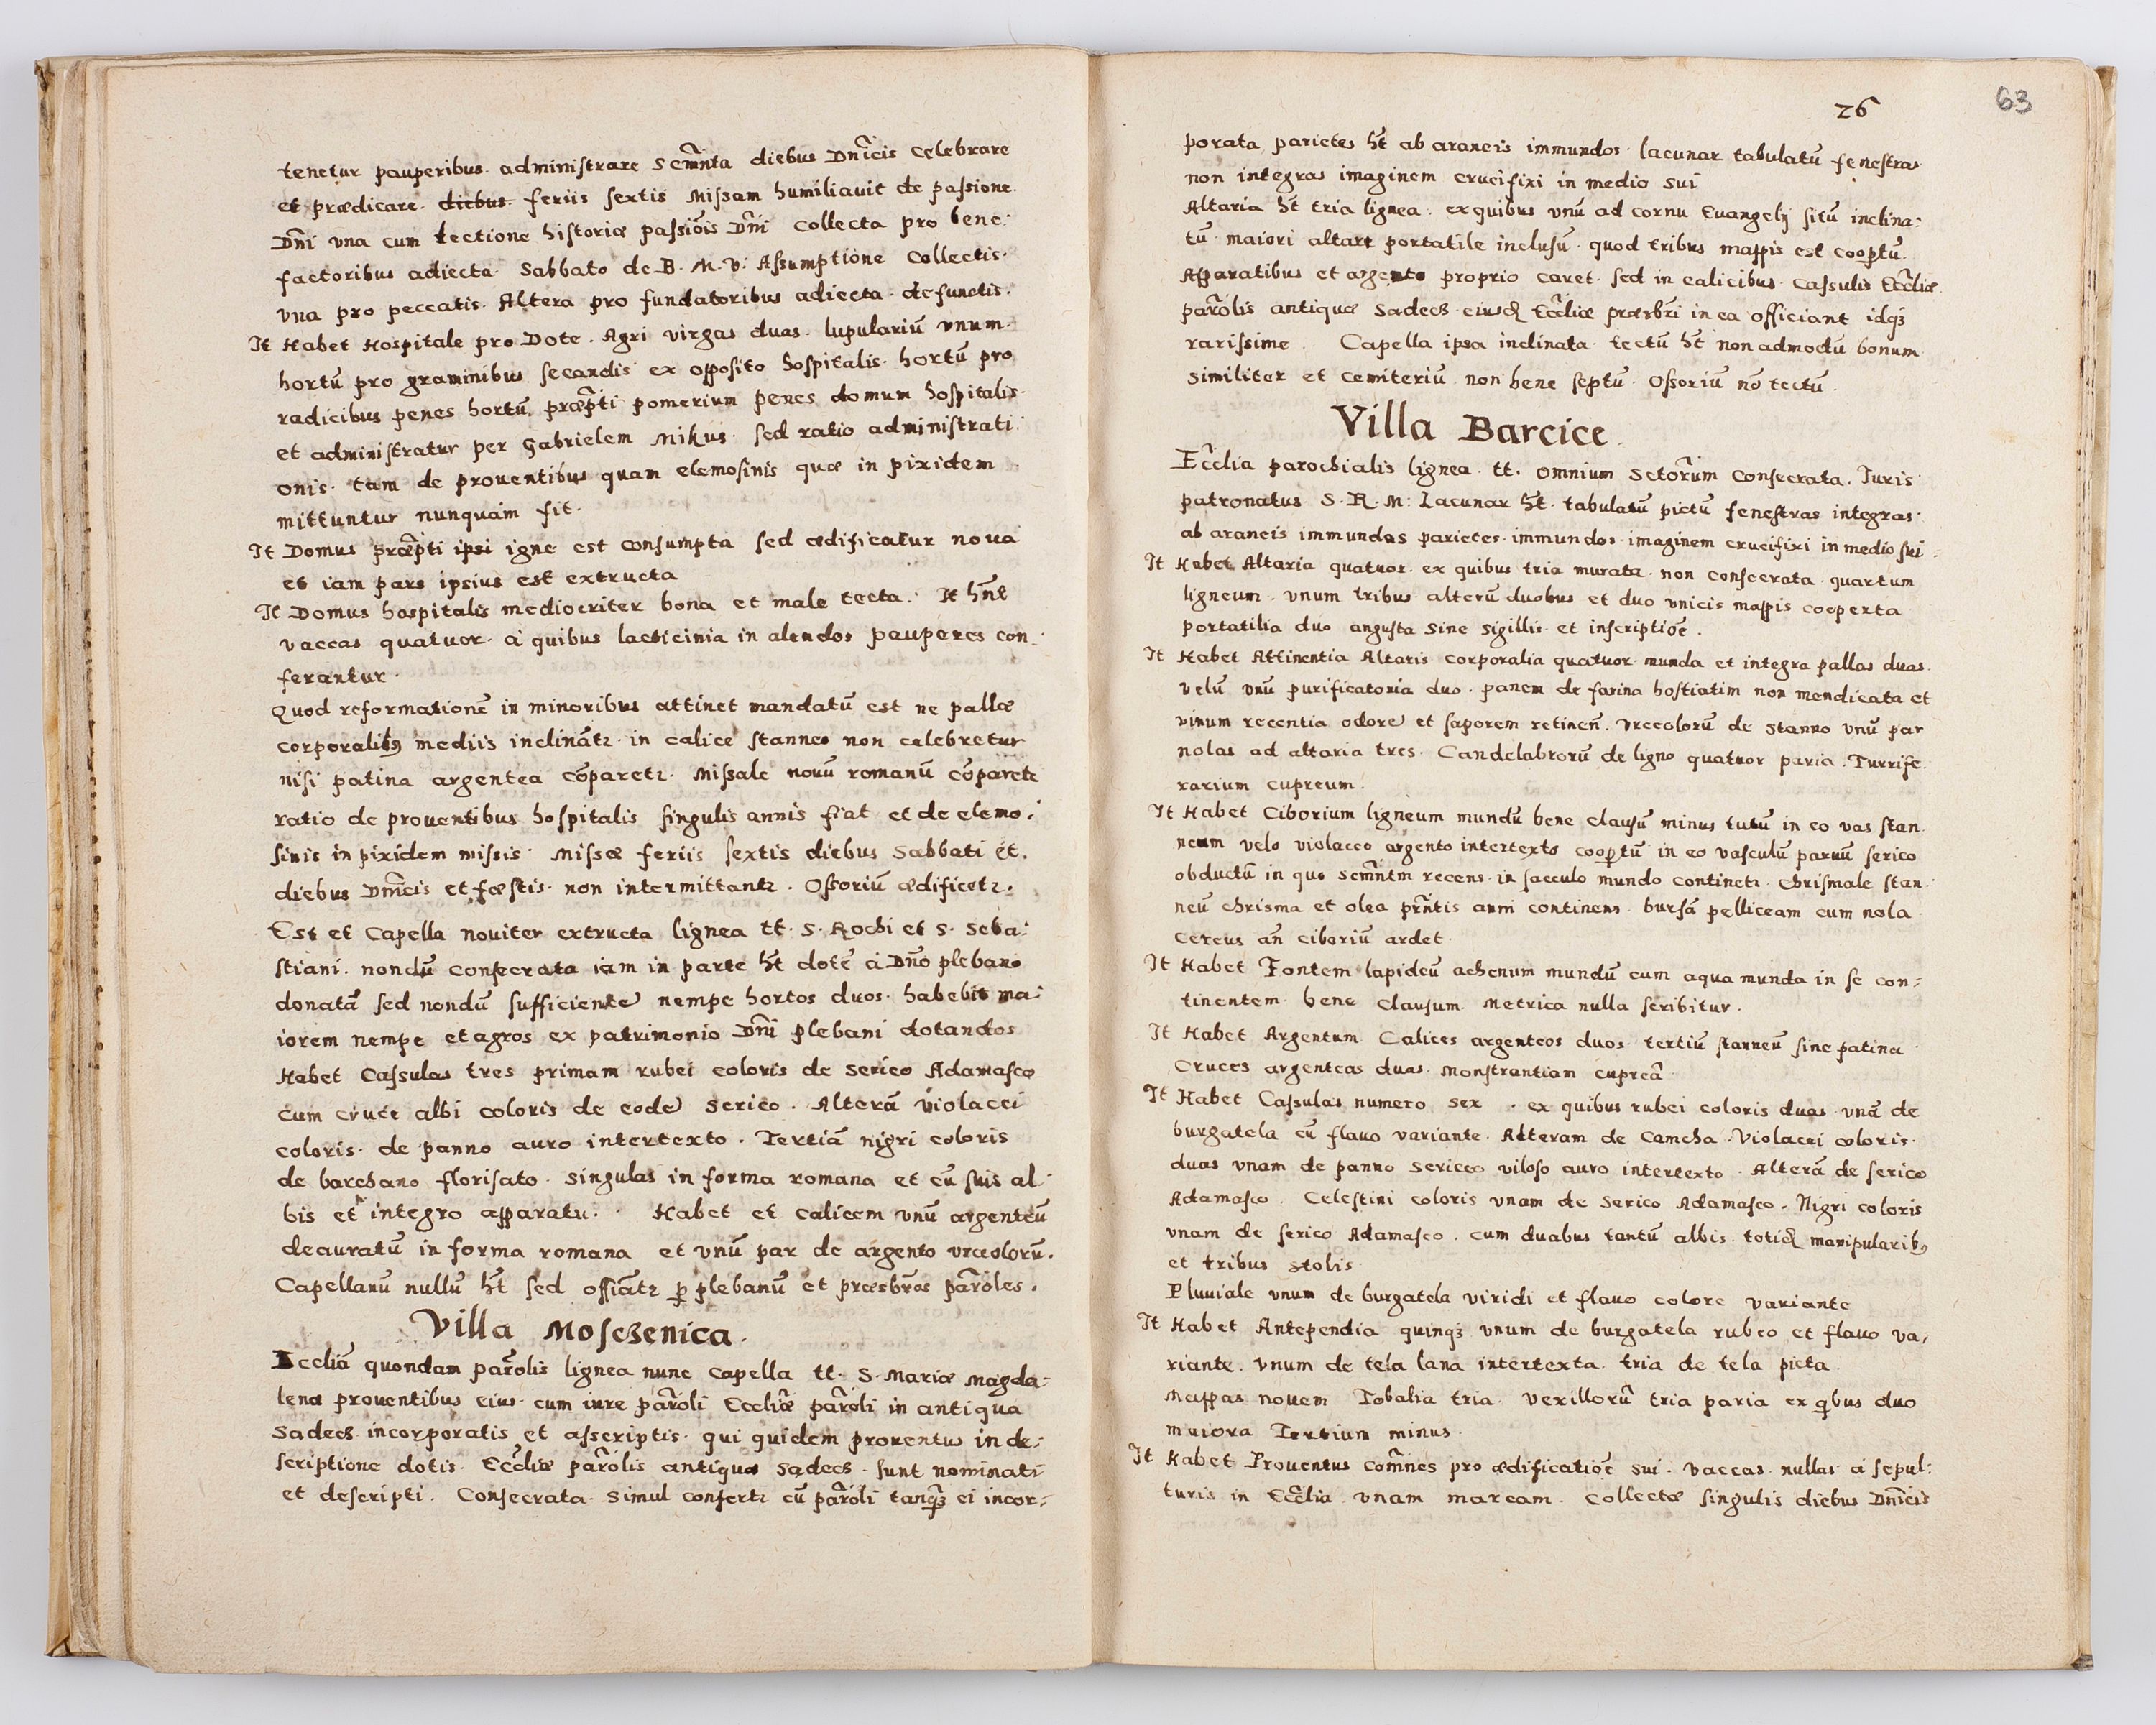 tenetur pauperibus administrare Scm̃nta diebus Dñicis celebrare
et prædicare diebus feriis sextis Missam humiliauit de passione
Dñi vna cum lectione historiæ passiõis Dñi Collecta pro bene:
factoribus adiecta Sabbato de B. M. V: Assumptione Collectis
vna pro peccatis. Altera pro fundatoribus adiecta defunctis.
It Habet Hospitale pro Dote. Agri virgas duas. lupulariũ vnum.
hortũ pro graminibus secandis ex opposito hospitalis. hortũ pro
radicibus penes hortũ præp̃ti pomerium penes domum hospitalis
et administratur per Gabrielem Mikus. sed ratio administrati:
onis tam de prouentibus quam elemosinis quæ in pixidem
mittuntur nunquam fit.
It Domus præp̃ti ipsi igne est consumpta sed ædificatur noua
et iam pars ipsius est extructa
It Domus hospitalis mediocriter bona et male tecta. It hñt
vaccas quatuor a quibus lacticinia in alendos pauperes con:
ferantur.
Quod reformationẽ in minoribus attinet mandatũ est ne pallæ
corporalibꝰ mediis inclinãtr in calice stanneo non celebretur
nisi patina argentea cõparetr. Missale nouũ romanũ cõparetr
ratio de prouentibus hospitalis singulis annis fiat et de elemo:
sinis in pixidem missis. Missæ feriis sextis diebus Sabbati et
diebus Dñicis et fæstis non intermittantr. Ossoriũ ædificetr.
Est et Capella nouiter extructa lignea tt. S. Rochi et S. Seba:
stiani. nondũ consecrata iam in parte h̃t dotẽ a Dño plebano
donatã sed nondũ sufficiente nempe hortos duos. habebit ma:
iorem nempe et agros ex patrimonio Dñi plebani dotandos
Habet Cassulas tres primam rubei coloris de Serico Adamasco
cum cruce albi coloris de eode Serico. Alterã violacei
coloris de panno auro intertexto. Tertiã nigri coloris
de barchano florisato. singulas in forma romana et cũ suis al:
bis et integro apparatu. Habet et calicem vnũ argenteũ
deauratũ in forma romana et vnũ par de argento vrceolorũ.
Capellanũ nullũ h̃t sed offiãtr ꝑ plebanũ et præsbr̃os par̃oles.
Villa Mosczenica.
Eccliã quondam par̃olis lignea nunc capella tt. S. Mariæ Magda:
lenæ prouentibus eius cum iure par̃oli Eccliæ̃ par̃oli in antiqua
Sadecz incorporatis et asscriptis qui quidem prouentus in de:
scriptione dotis Eccl̃iæ par̃olis antiquæ Sadecz sunt nominati
et descripti. Consecrata simul confertr cũ par̃oli tanqꝫ ei incor:
26
63
porata parietes h̃t ab araneis immundos lacunar tabulatũ fenestras
non integras imaginem crucifixi in medio sui
Altaria h̃t tria lignea. ex quibus vnũ ad cornu Euangelij sitũ inclina:
tũ maiori altare portatile inclusũ quod tribus mappis est coop̃tũ.
Apparatibus et argento proprio caret. sed in calicibus Cassulis Eccl̃iæ
par̃olis antiquæ Sadecz eiusd̃ Eccl̃iæ præsbr̃i in ea officiant idqꝫ
rarissime. Capella ipsa inclinata tectũ h̃t non admodũ bonum
similiter et cemiteriũ non bene septũ. Ossoriũ nõ tectũ.
Villa Barcice.
Eccl̃ia parochialis lignea tt. omnium Sctor̃um Consecrata. Iuris
patronatus S. R. M: Lacunar h̃t tabulatũ pictũ fenestras integras
ab araneis immundas parietes immundos imaginem crucifixi in medio sui
It Habet Altaria quatuor. ex quibus tria murata non consecrata quartum
ligneum vnum tribus alterũ duobus et duo vnicis mappis cooperta
portatilia duo angusta sine sigillis et inscriptiõe.
It Habet Attinentia Altaris corporalia quatuor munda et integra pallas duas
velũ vnũ purificatoria duo. panem de farina hostiatim non mendicata et
vinum recentia odore et saporem retineñ. Vrceolorũ de stanno vnũ par
nolas ad altaria tres. Candelabrorũ de ligno quatuor paria. Turrife:
rarium cupreum.
It Habet Ciborium ligneum mundũ bene clausũ minus tutũ in eo vas stan
neum velo violaceo argento intertexto coop̃tũ in eo vasculũ paruũ serico
obductũ in quo Scm̃ntm recens in sacculo mundo continetr. Chrismale stan:
neũ chrisma et olea pr̃ntis anni continens. bursã pelliceam cum nola
Cereus añ ciboriũ ardet.
It Habet Fontem lapideũ ahenum mundũ cum aqua munda in se con:
tinentem bene clausum. Metrica nulla scribitur.
It Habet Argentum Calices argenteos duos tertiũ stanneũ sine patina
Cruces argenteas duas. Monstrantiam cupreã
It Habet Cassulas numero sex. ex quibus rubei coloris duas vnã de
burgatela cũ flauo variante. Alteram de Camcha. Violacei coloris
duas vnam de panno sericeo viloso auro intertexto. Alterã de serico
Adamasco. Celestini coloris vnam de Serico Adamasco. Nigri coloris
vnam de serico Adamasco. cum duabus tantũ albis totid̃ manipularibꝰ
et tribus stolis
Pluuiale vnum de burgatela viridi et flauo colore variante
It Habet Antependia quinqꝫ vnum de burgatela rubeo et flauo va:
riante. vnum de tela lana intertexta. tria de tela picta
Mappas nouem Tobalia tria. vexillorũ tria paria ex qũbus duo
maiora Tertium minus
It Habet Prouentus com̃nes pro ædificatiõe sui. Vaccas nullas a sepul:
turis in Eccl̃ia vnam marcam. Collectæ singulis diebus Dñicis